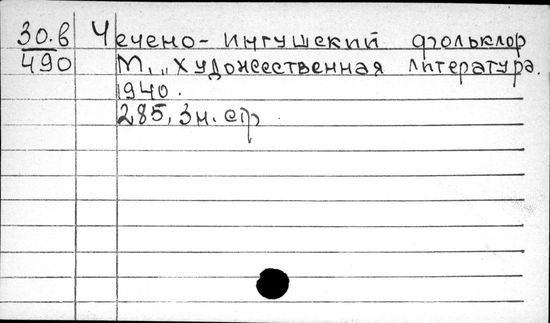 30.в Чечено-ингушский фольклор
490 М., „Художественная литература.
1940.
285, 3н. стр